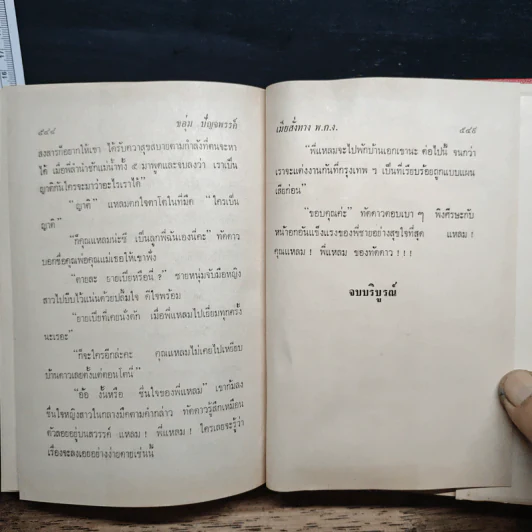 ๕๔๘ ขอุ่ม ปัญจพรรค์
สงสารก็อยากให้เขา ได้รับความสุขสบายตามกำลังที่ตนจะหา
ได้ เมื่อพี่ล่านำซักแม่น้ำทั้ง ๕ มาพูดและจบลงว่า เราเป็น
ญาติกันใครจะมาว่าอะไรเราได้”
“ญาติ” แหลมตกใจตาโตในที่มืด “ใครเป็น
ญาติ”
“ก็คุณแหลมน่ะซี เป็นลูกพี่ฉันเองนี่คะ” ทัดดาว
บอกชื่อคุณพ่อคุณแม่เธอให้เขาฟัง
“ตายละ ยายเบี้ยหรือนี่ ?” ชายหนุ่มจับมือหญิง
สาวไปบีบไว้แน่นด้วยปลื้มใจ ดีใจพร้อม
“ยายเบี้ยที่เคยนั่งตัก เมื่อพี่แหลมไปเยี่ยมทุกครั้ง
นะเรอะ”
“ก็จะใครอีกล่ะคะ คุณแหลมไม่เคยไปเหยียบ
บ้านดาวเลยตั้งแต่ตอนโตนี่”
“อ้อ งั้นหรือ ชื่นใจของพี่แหลม” เขาก้มลง
ชื่นใจหญิงสาวในกลางมืดตามคำกล่าว ทัดดาวรู้สึกเหมือน
ตัวลอยอยู่บนสวรรค์ แหลม ! พี่แหลม ! ใครเลยจะรู้ว่า
เรื่องจะลงเอยอย่างง่ายดายเช่นนี้
เมื่อสั่งทาง พ.ก.ง. ๕๔๙
“พี่แหลมจะไปพักบ้านแอกเขานะ ต่อไปนี้ จนกว่า
เราจะแต่งงานกันที่กรุงเทพ ฯ เป็นที่เรียบร้อยถูกแบบแผน
เสียก่อน”
“ขอบคุณค่ะ” ทัดดาวตอบเบา ๆ พิงศีรษะกับ
หน้าอกอันแข็งแรงของพี่ชายอย่างสุขใจที่สุด แหลม !
คุณแหลม ! พี่แหลม ของทัดดาว ! ! !
จบบริบูรณ์